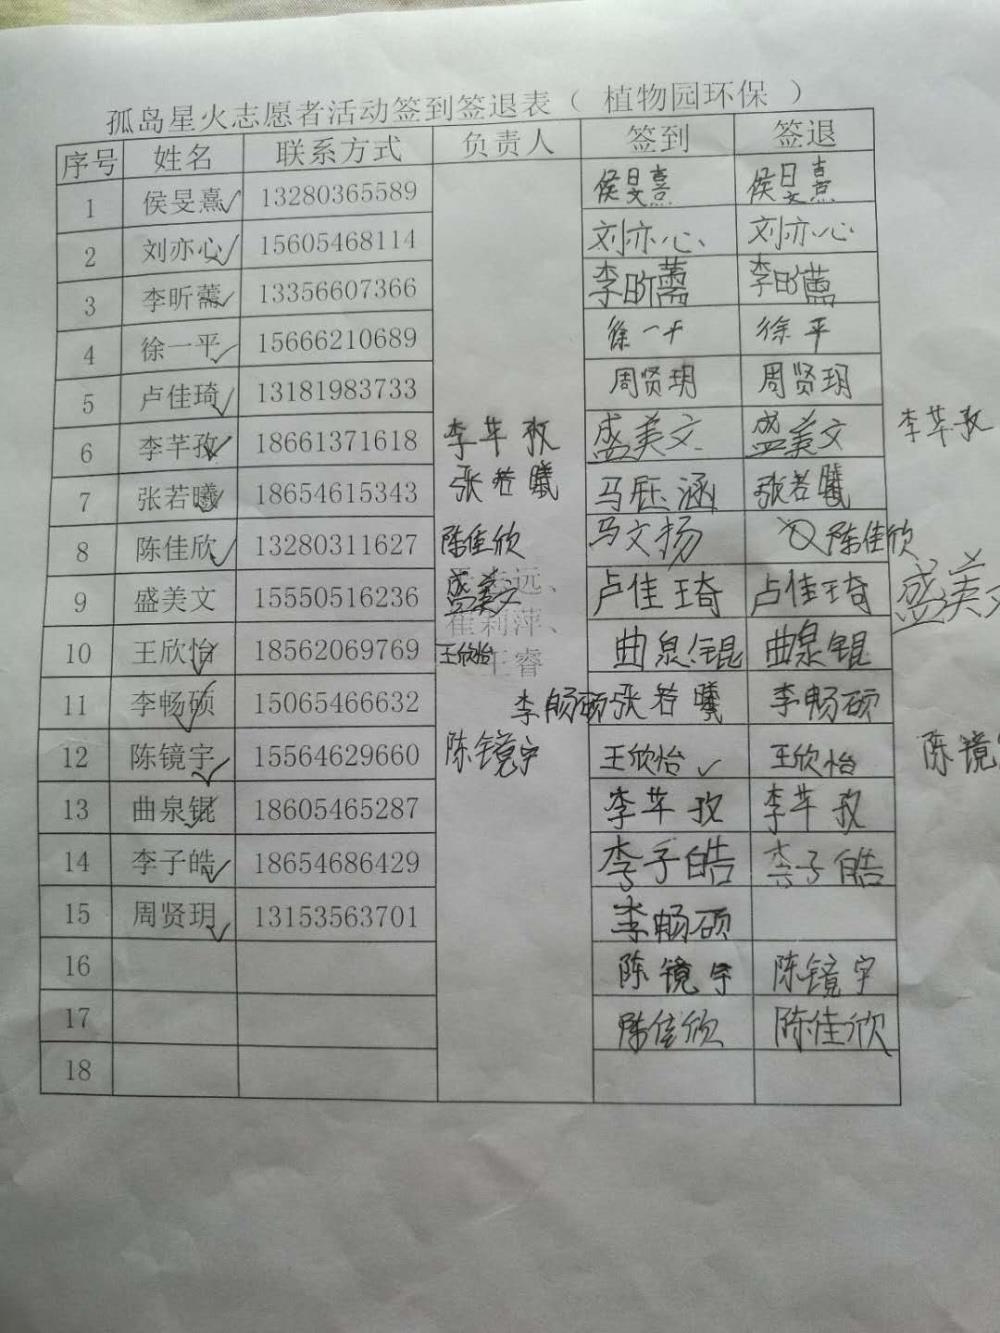 孤岛星火志愿者活动签到签退表（ 植物园环保 ）
序号 姓名 联系方式 负责人 签到 签退
1 侯旻熹 13280365589 侯旻熹 侯旻熹
2 刘亦心 15605468114 刘亦心 刘亦心
3 李昕薷 13356607366 李昕薷 李昕薷
4 徐一平 15666210689 徐一平 徐平
5 卢佳琦 13181983733 周贤玥 周贤玥
6 李芊孜 18661371618 李芊孜 盛美文 盛美文 李芊孜
7 张若曦 18654615343 张若曦 马钰涵 张若曦
8 陈佳欣 13280311627 陈佳欣 马文扬 陈佳欣
9 盛美文 15550516236 盛美文 远、 卢佳琦 卢佳琦 盛美文
崔莉萍、
10 王欣怡 18562069769 王欣怡 王睿 曲泉锟 曲泉锟
11 李畅硕 15065466632 李畅硕 张若曦 李畅硕
12 陈镜宇 15564629660 陈镜宇 王欣怡 王欣怡 陈镜
13 曲泉锟 18605465287 李芊孜 李芊孜
14 李子皓 18654686429 李子皓 李子皓
15 周贤玥 13153563701 李畅硕
16 陈镜宇 陈镜宇
17 陈佳欣 陈佳欣
18